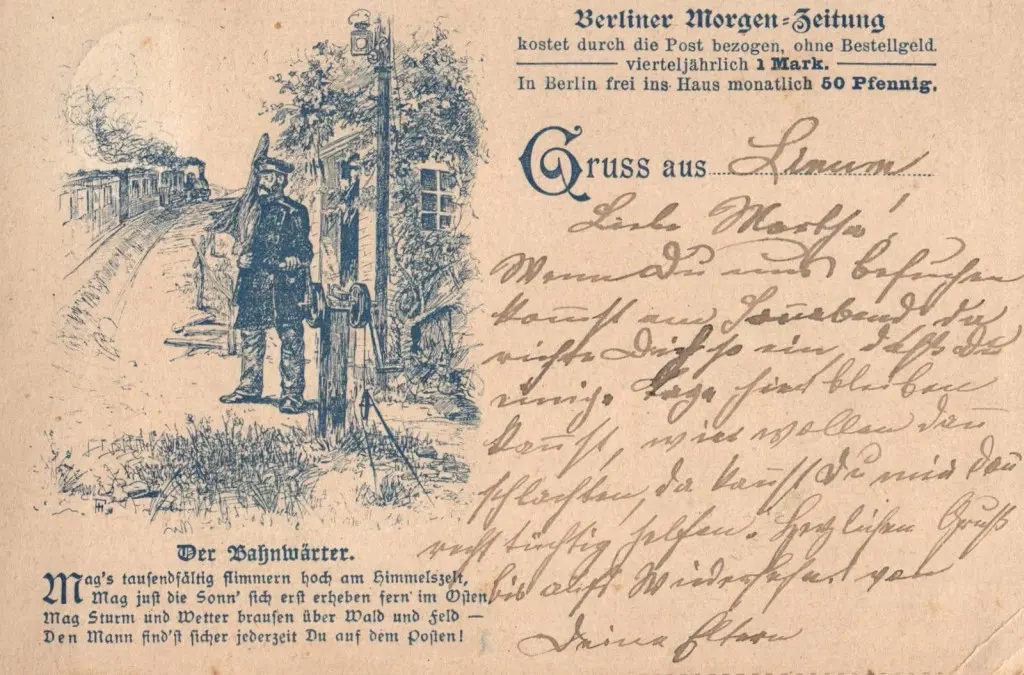 Berliner Morgen-Zeitung
kostet durch die Post bezogen, ohne Bestellgeld.
vierteljährlich 1 Mark.
In Berlin frei ins Haus monatlich 50 Pfennig.
Gruss aus Linum
Liebe Martha!
Wenn Du uns besuchen
kom̅st am Son̅abend, da
richte Dich so ein, daß Du
einige Tage hier bleiben
kan̅st, wir wollen dan̅
schlachten, da kan̅st Du mir dan̅
recht tüchtig helfen. Herzlichen Gruß
bis aufs Wiedersehen von
Deine Eltern
Der Bahnwärter.
Mag's tausendfältig flimmern hoch am Himmelszelt,
Mag just die Sonn' sich erst erheben fern' im Osten,
Mag Sturm und Wetter brausen über Wald und Feld —
Den Mann find'st sicher jederzeit Du auf dem Posten!